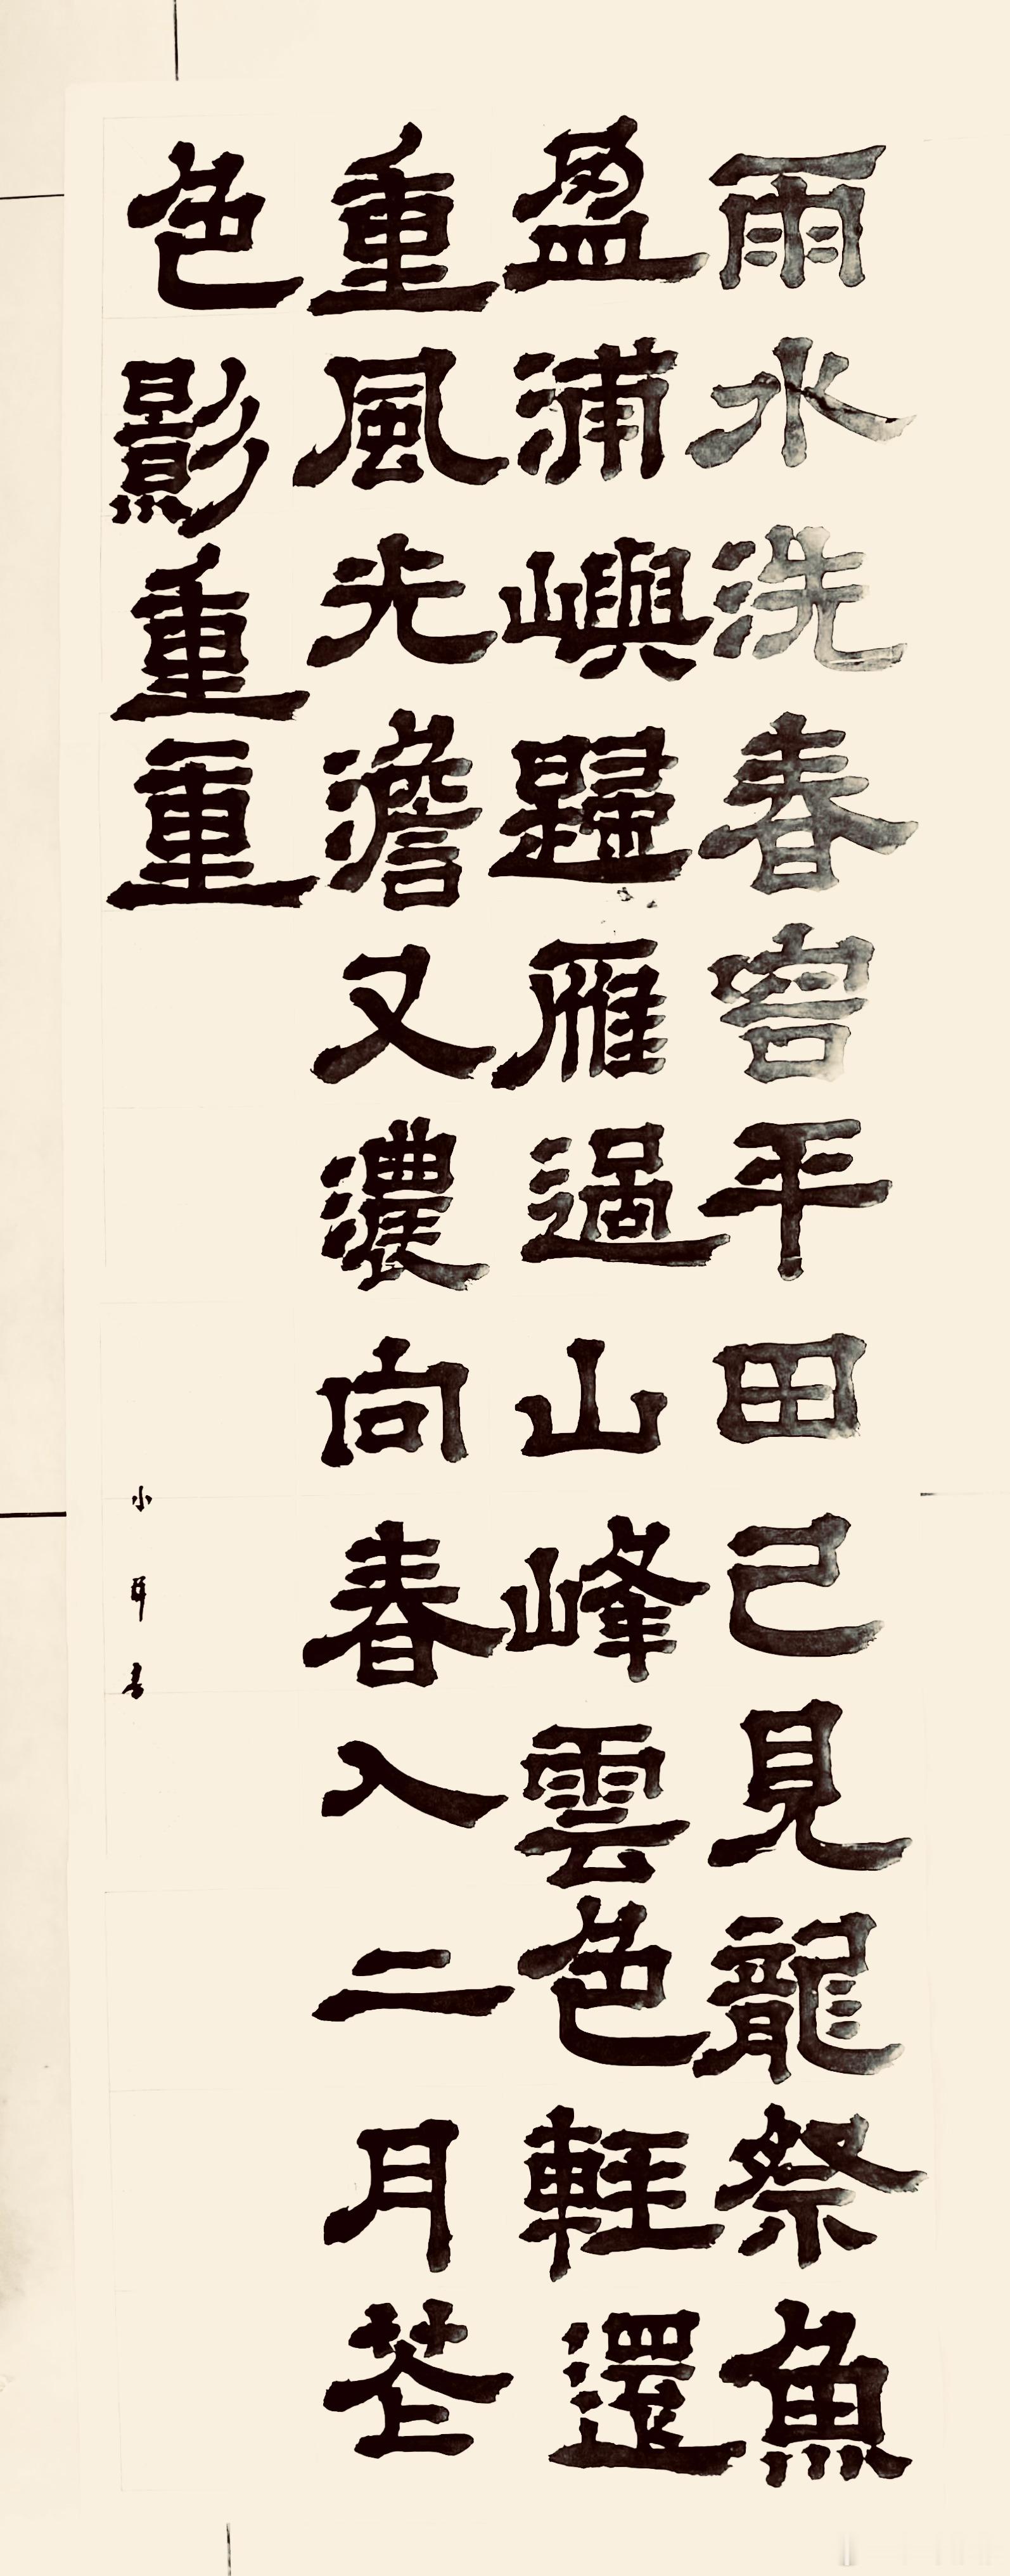 雨水洗春容平田已見龍祭魚
盈浦嶼歸雁過山峰雲色輕還
重風光澹又濃向春入二月花
色影重重
小